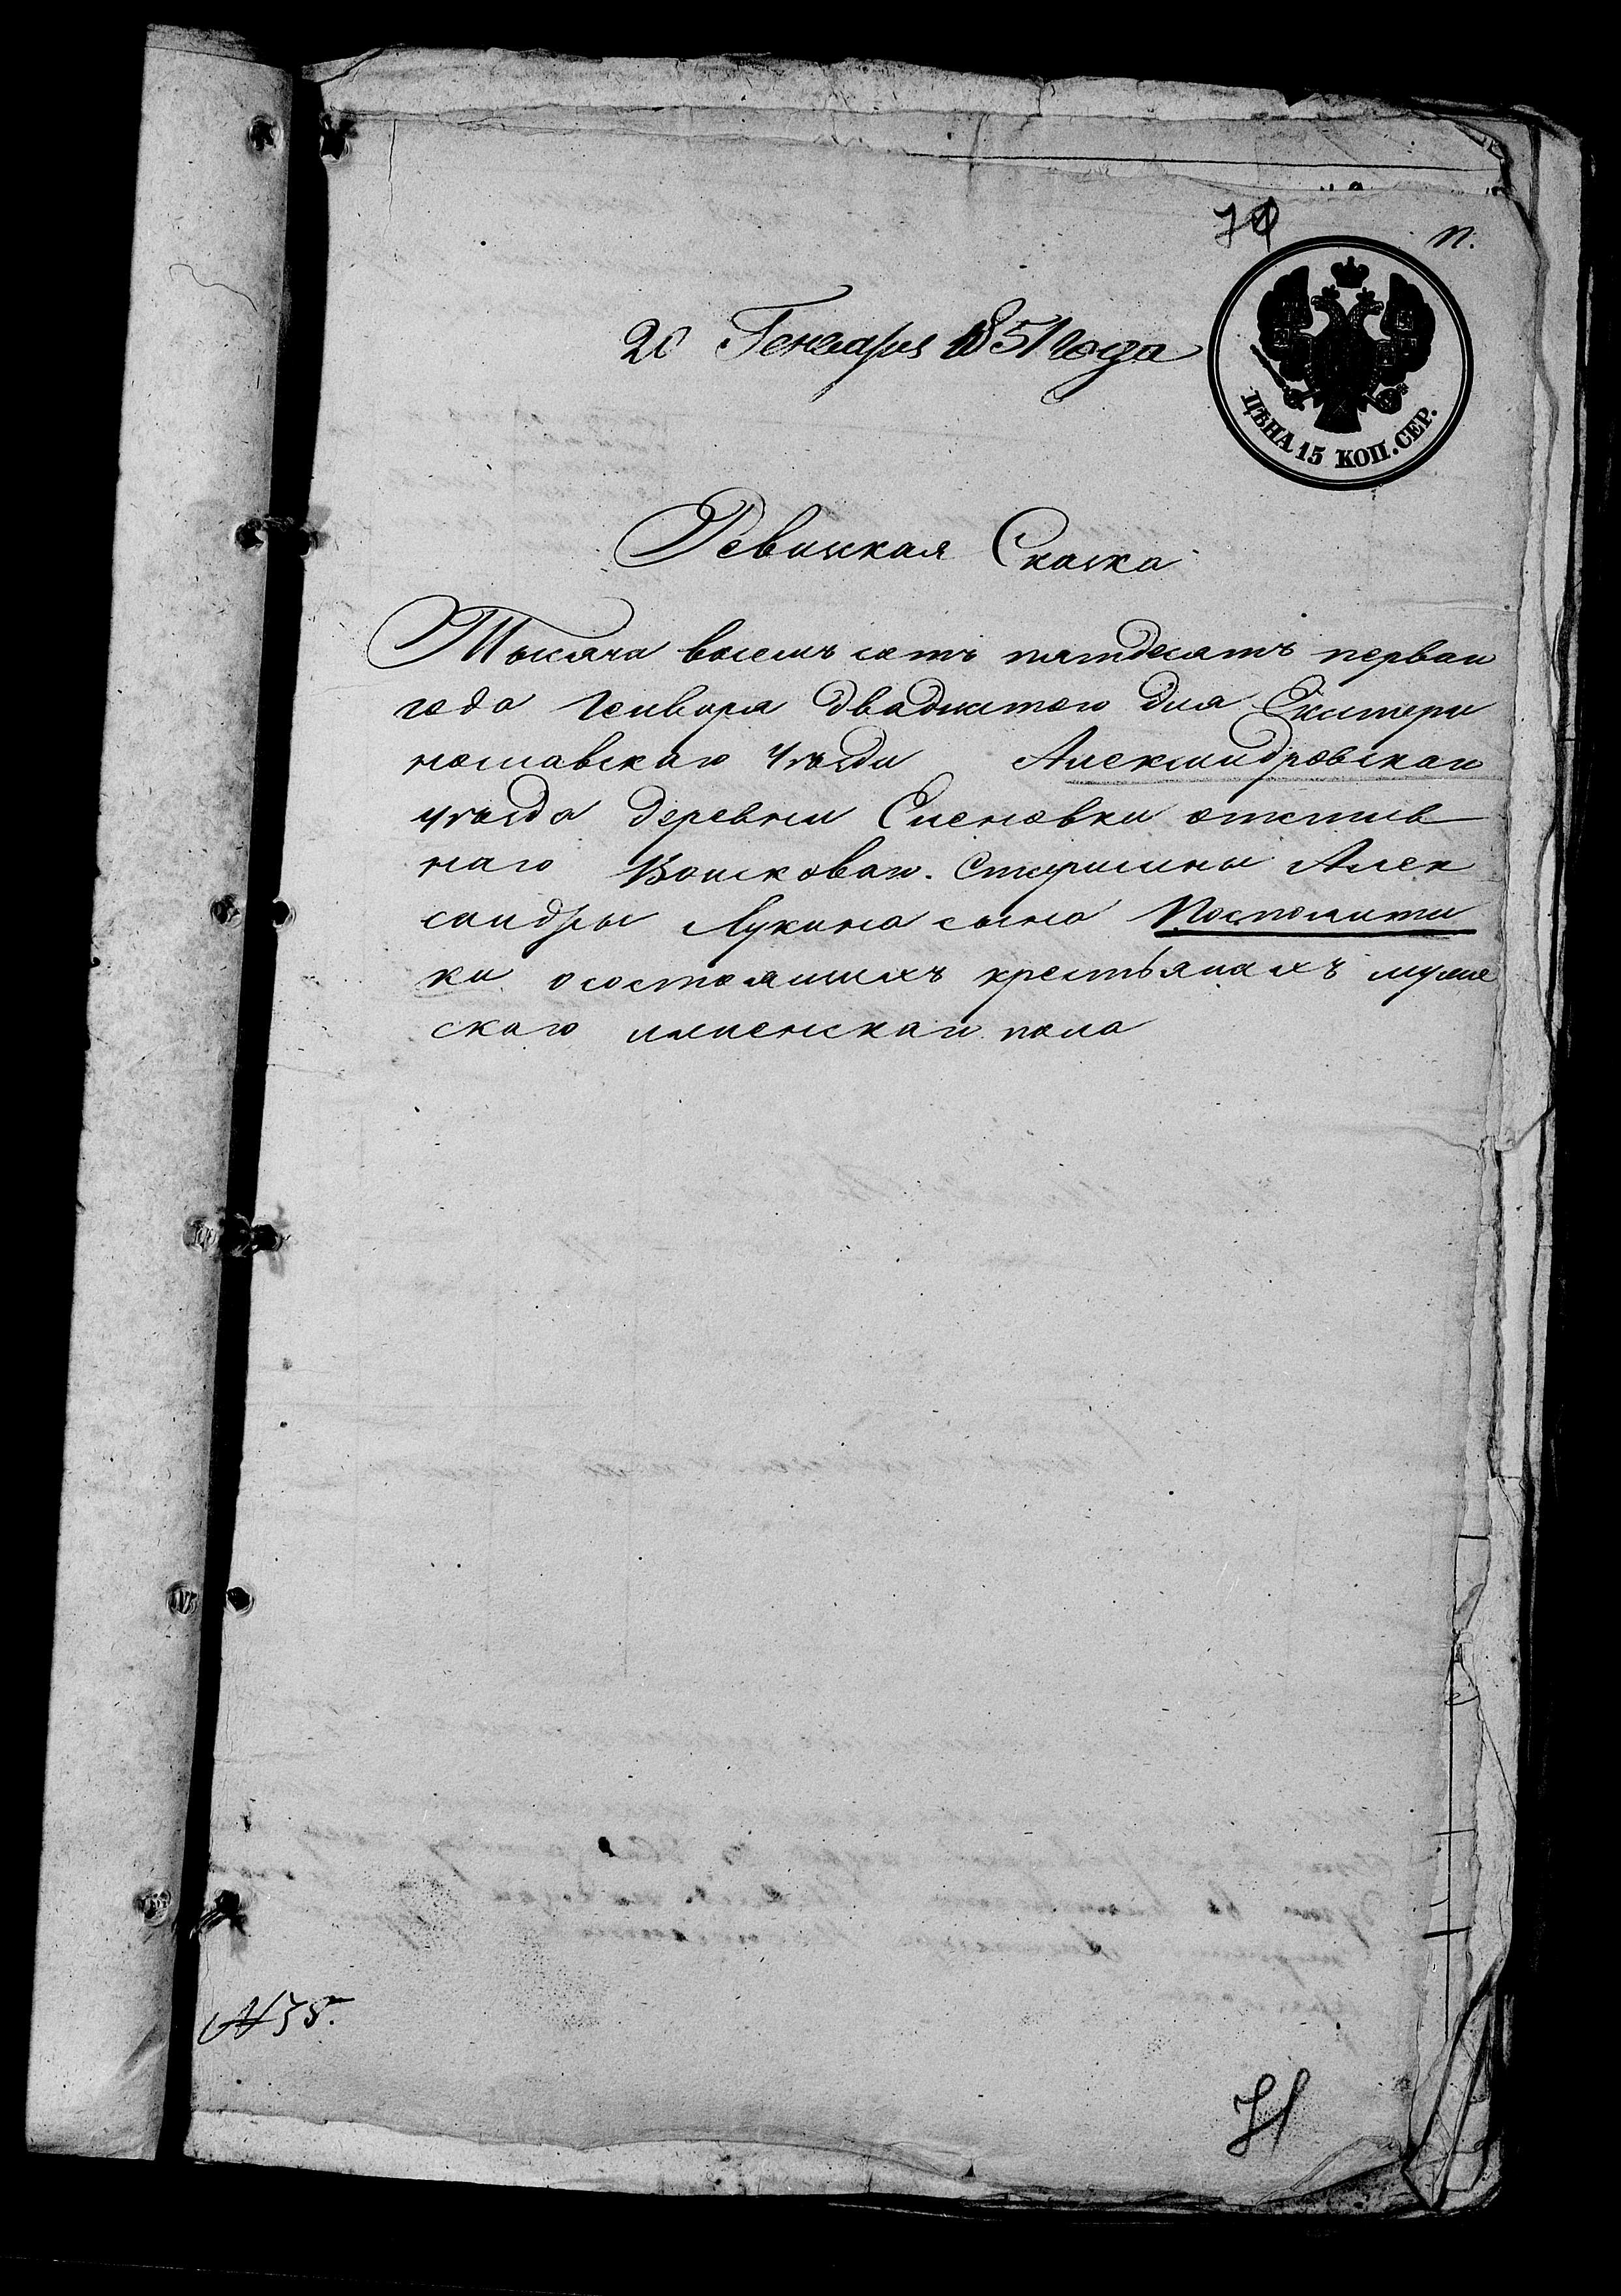 71
п.
20 Генваря 1851 года
ЦѢНА 15 КОП. СЕР.
Ревиская Скаска
Тысяча восемь сотъ пятдесятъ перваго
года Генваря двадцатого дня Екатери
нославскаго уѣзда Александровскаго
уѣзда деревни Еленовки отстав
наго Войсковаго Старшины Алек
сандры Лукина сына Посполита
ки о состоящихъ крестьянахъ муже
скаго и женскаго пола
№ 35.
71